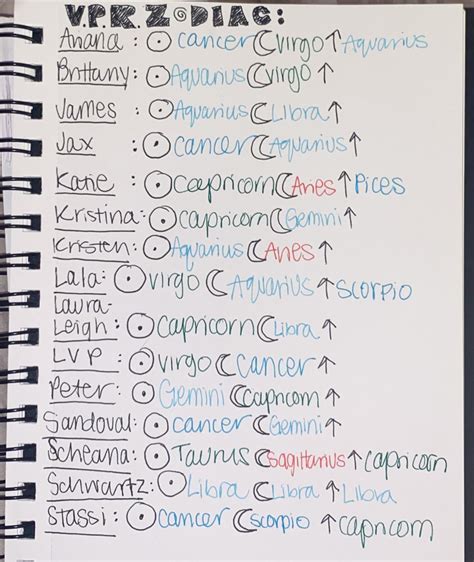 V.P.R. ZODIAC:
Ariana : ☉ cancer ☾ Virgo ↑ Aquarius
Brittany: ☉ Aquarius ☾ Virgo ↑
James : ☉ Aquarius ☾ Libra ↑
Jax : ☉ cancer ☾ Aquarius ↑
Katie : ☉ Capricorn ☾ Aries ↑ Pices
Kristina: ☉ Capricorn ☾ Gemini ↑
Kristen: ☉ Aquarius ☾ Aries ↑
Lala: ☉ Virgo ☾ Aquarius ↑ Scorpio
Laura-
Leigh: ☉ Capricorn ☾ Libra ↑
LVP : ☉ Virgo ☾ Cancer ↑
Peter: ☉ Gemini ☾ Capricorn ↑
Sandoval: ☉ cancer ☾ Gemini ↑
Scheana: ☉ Taurus ☾ Sagittarius ↑ Capricorn
Schwartz: ☉ Libra ☾ Libra ↑ Libra
Stassi: ☉ Cancer ☾ Scorpio ↑ Capricorn